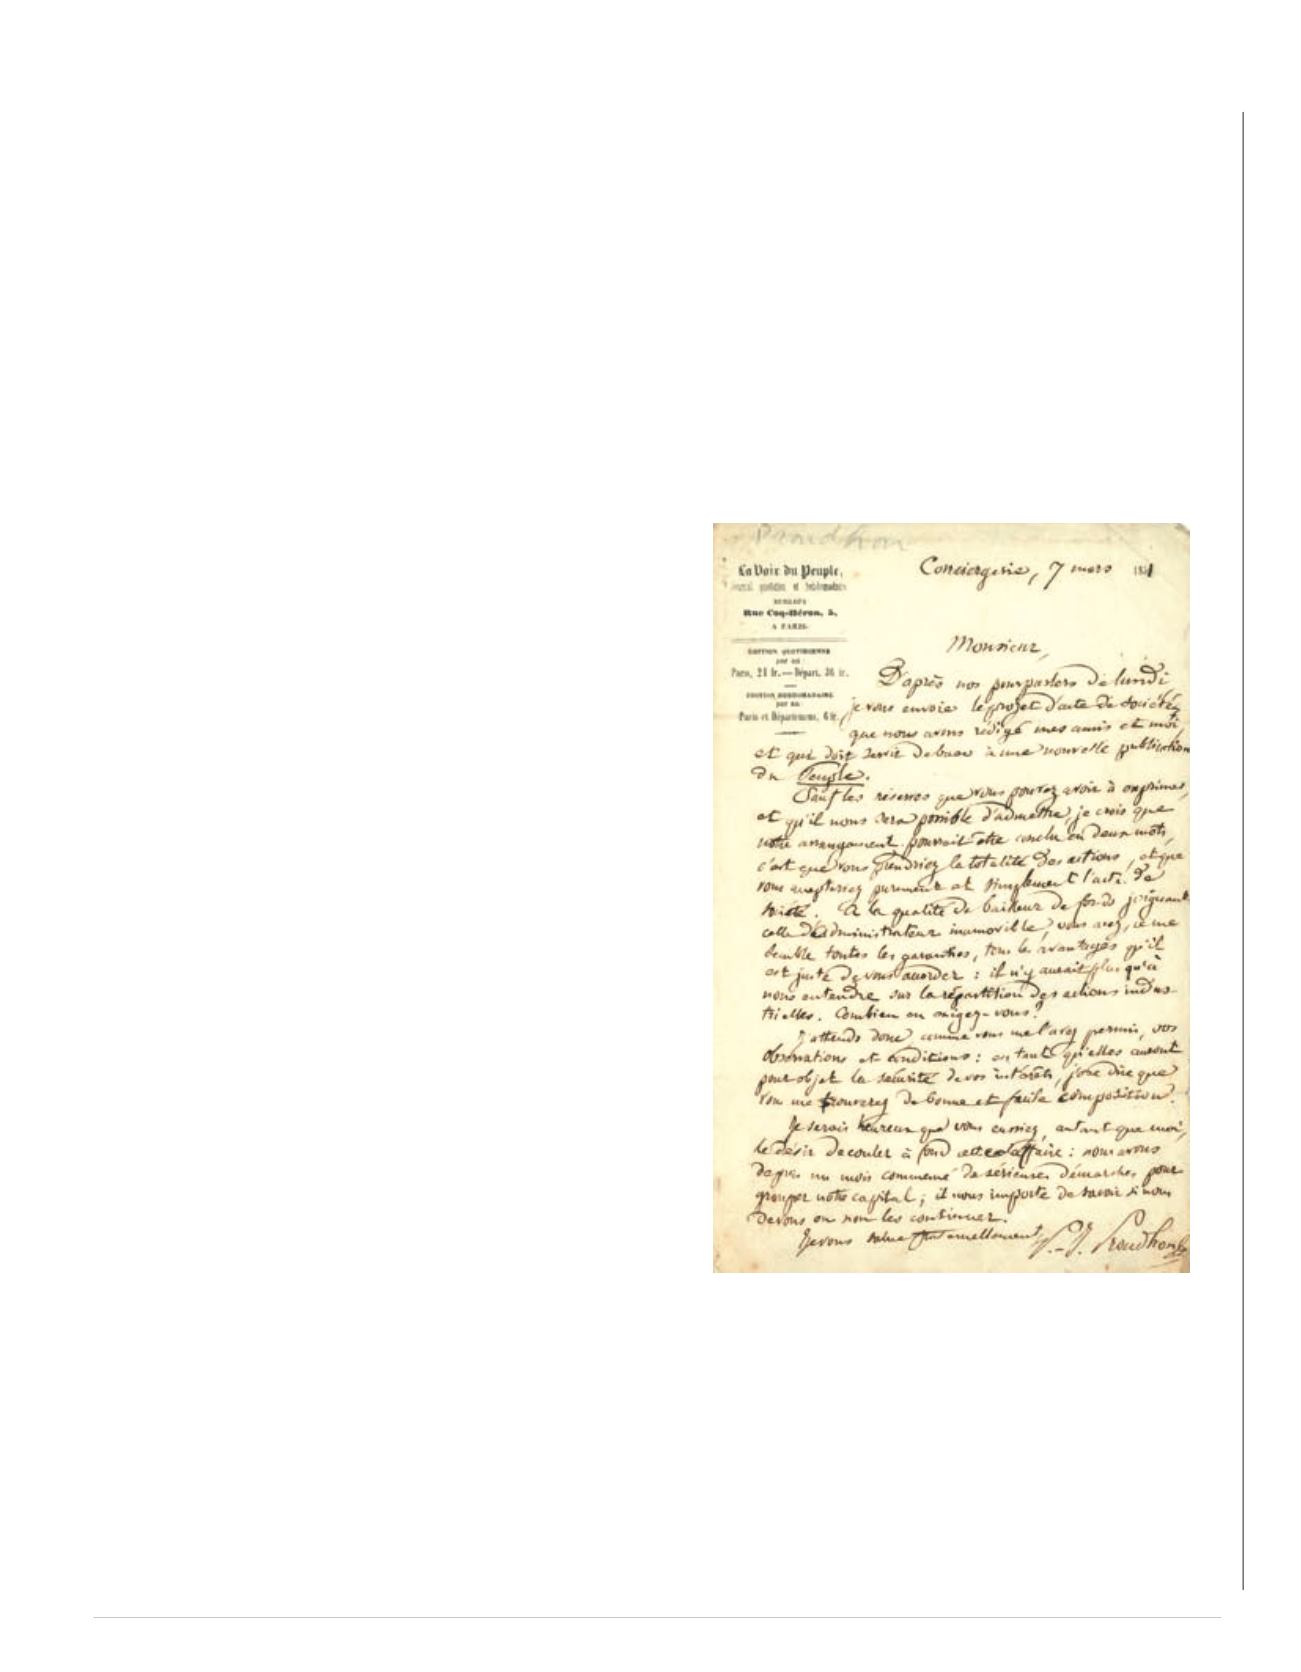 Proudhon
La Voix du Peuple,
Journal quotidien et hebdomadaire
BUREAUX
Rue Coq-Héron, 5,
A PARIS.
ÉDITION QUOTIDIENNE
par an:
Paris, 28 fr. — Départ. 36 fr.
ÉDITION HEBDOMADAIRE
par an:
Paris et Départemens, 6 fr.
Conciergerie, 7 mars 1851
Monsieur,
D'après nos pourparlers de lundi
je vous envoie le projet d'acte de société,
que nous avons rédigé mes amis et moi,
et qui doit servir de base à une nouvelle publication
du Peuple.
Sauf les réserves que vous pourrez avoir à exprimer,
et qu'il nous sera possible d'admettre, je crois que
notre arrangement pourrait être conclu en deux mots,
c'est que vous prendriez la totalité des actions, et que
vous accepteriez purement et simplement l'acte de
société. A la qualité de bailleur de fonds joignant
celle d'administrateur inamovible, vous avez, ce me
semble toutes les garanties, tous les avantages qu'il
est juste de vous accorder : il n'y aurait plus qu'à
nous entendre sur la répartition des actions indus-
trielles. Combien en exigez-vous?
J'attends donc, comme vous me l'avez permis, vos
observations et conditions : en tant qu'elles auront
pour objet la sécurité de vos intérêts, j'ose dire que
vous me trouverez de bonne et facile composition.
Je serais heureux que vous eussiez, autant que moi,
le désir de couler à fond cette affaire : nous avons
depuis un mois commencé de sérieuses démarches pour
grouper notre capital ; il nous importe de savoir si nous
devons ou non les continuer.
Je vous salue fraternellement
P.-J. Proudhon